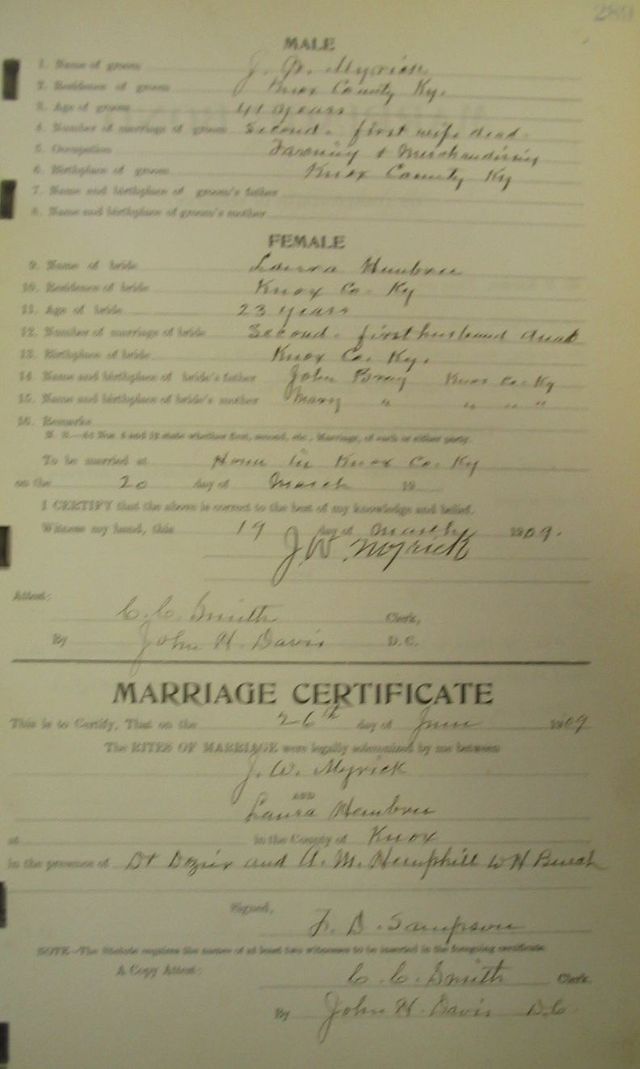 289
MALE
1. Name of groom J. W. Myrick
2. Residence of groom Knox County Ky.
3. Age of groom 41 years
4. Number of marriage of groom Second. first wife dead.
5. Occupation Farming & Merchandising
6. Birthplace of groom Knox County Ky
7. Name and birthplace of groom's father
8. Name and birthplace of groom's mother
FEMALE
9. Name of bride Laura Hembree
10. Residence of bride Knox Co. Ky
11. Age of bride 23 years
12. Number of marriage of bride Second. first husband dead
13. Birthplace of bride Knox Co. Ky.
14. Name and birthplace of bride's father John Bray Knox Co. Ky
15. Name and birthplace of bride's mother Mary " " " "
16. Remarks
N. B.—At Nos. 4 and 12 state whether first, second, etc., Marriage, of each or either party.
To be married at Home in Knox Co. Ky
on the 20 day of March 19
I CERTIFY that the above is correct to the best of my knowledge and belief.
Witness my hand, this 19 day of March 1909.
J. W. Myrick
Attest:
C. C. Smith Clerk,
By John H. Davis D. C.
MARRIAGE CERTIFICATE
This is to Certify, That on the 26th day of June 1909
The RITES OF MARRIAGE were legally solemnized by me between
J. W. Myrick
AND
Laura Hembree
at in the County of Knox
in the presence of Dt Dozier and A. M. Hemphill W H Burch
Signed,
F. D. Sampson
NOTE—The Statute requires the names of at least two witnesses to be inserted in the foregoing certificate.
A Copy Attest: C. C. Smith Clerk.
By John H. Davis D.C